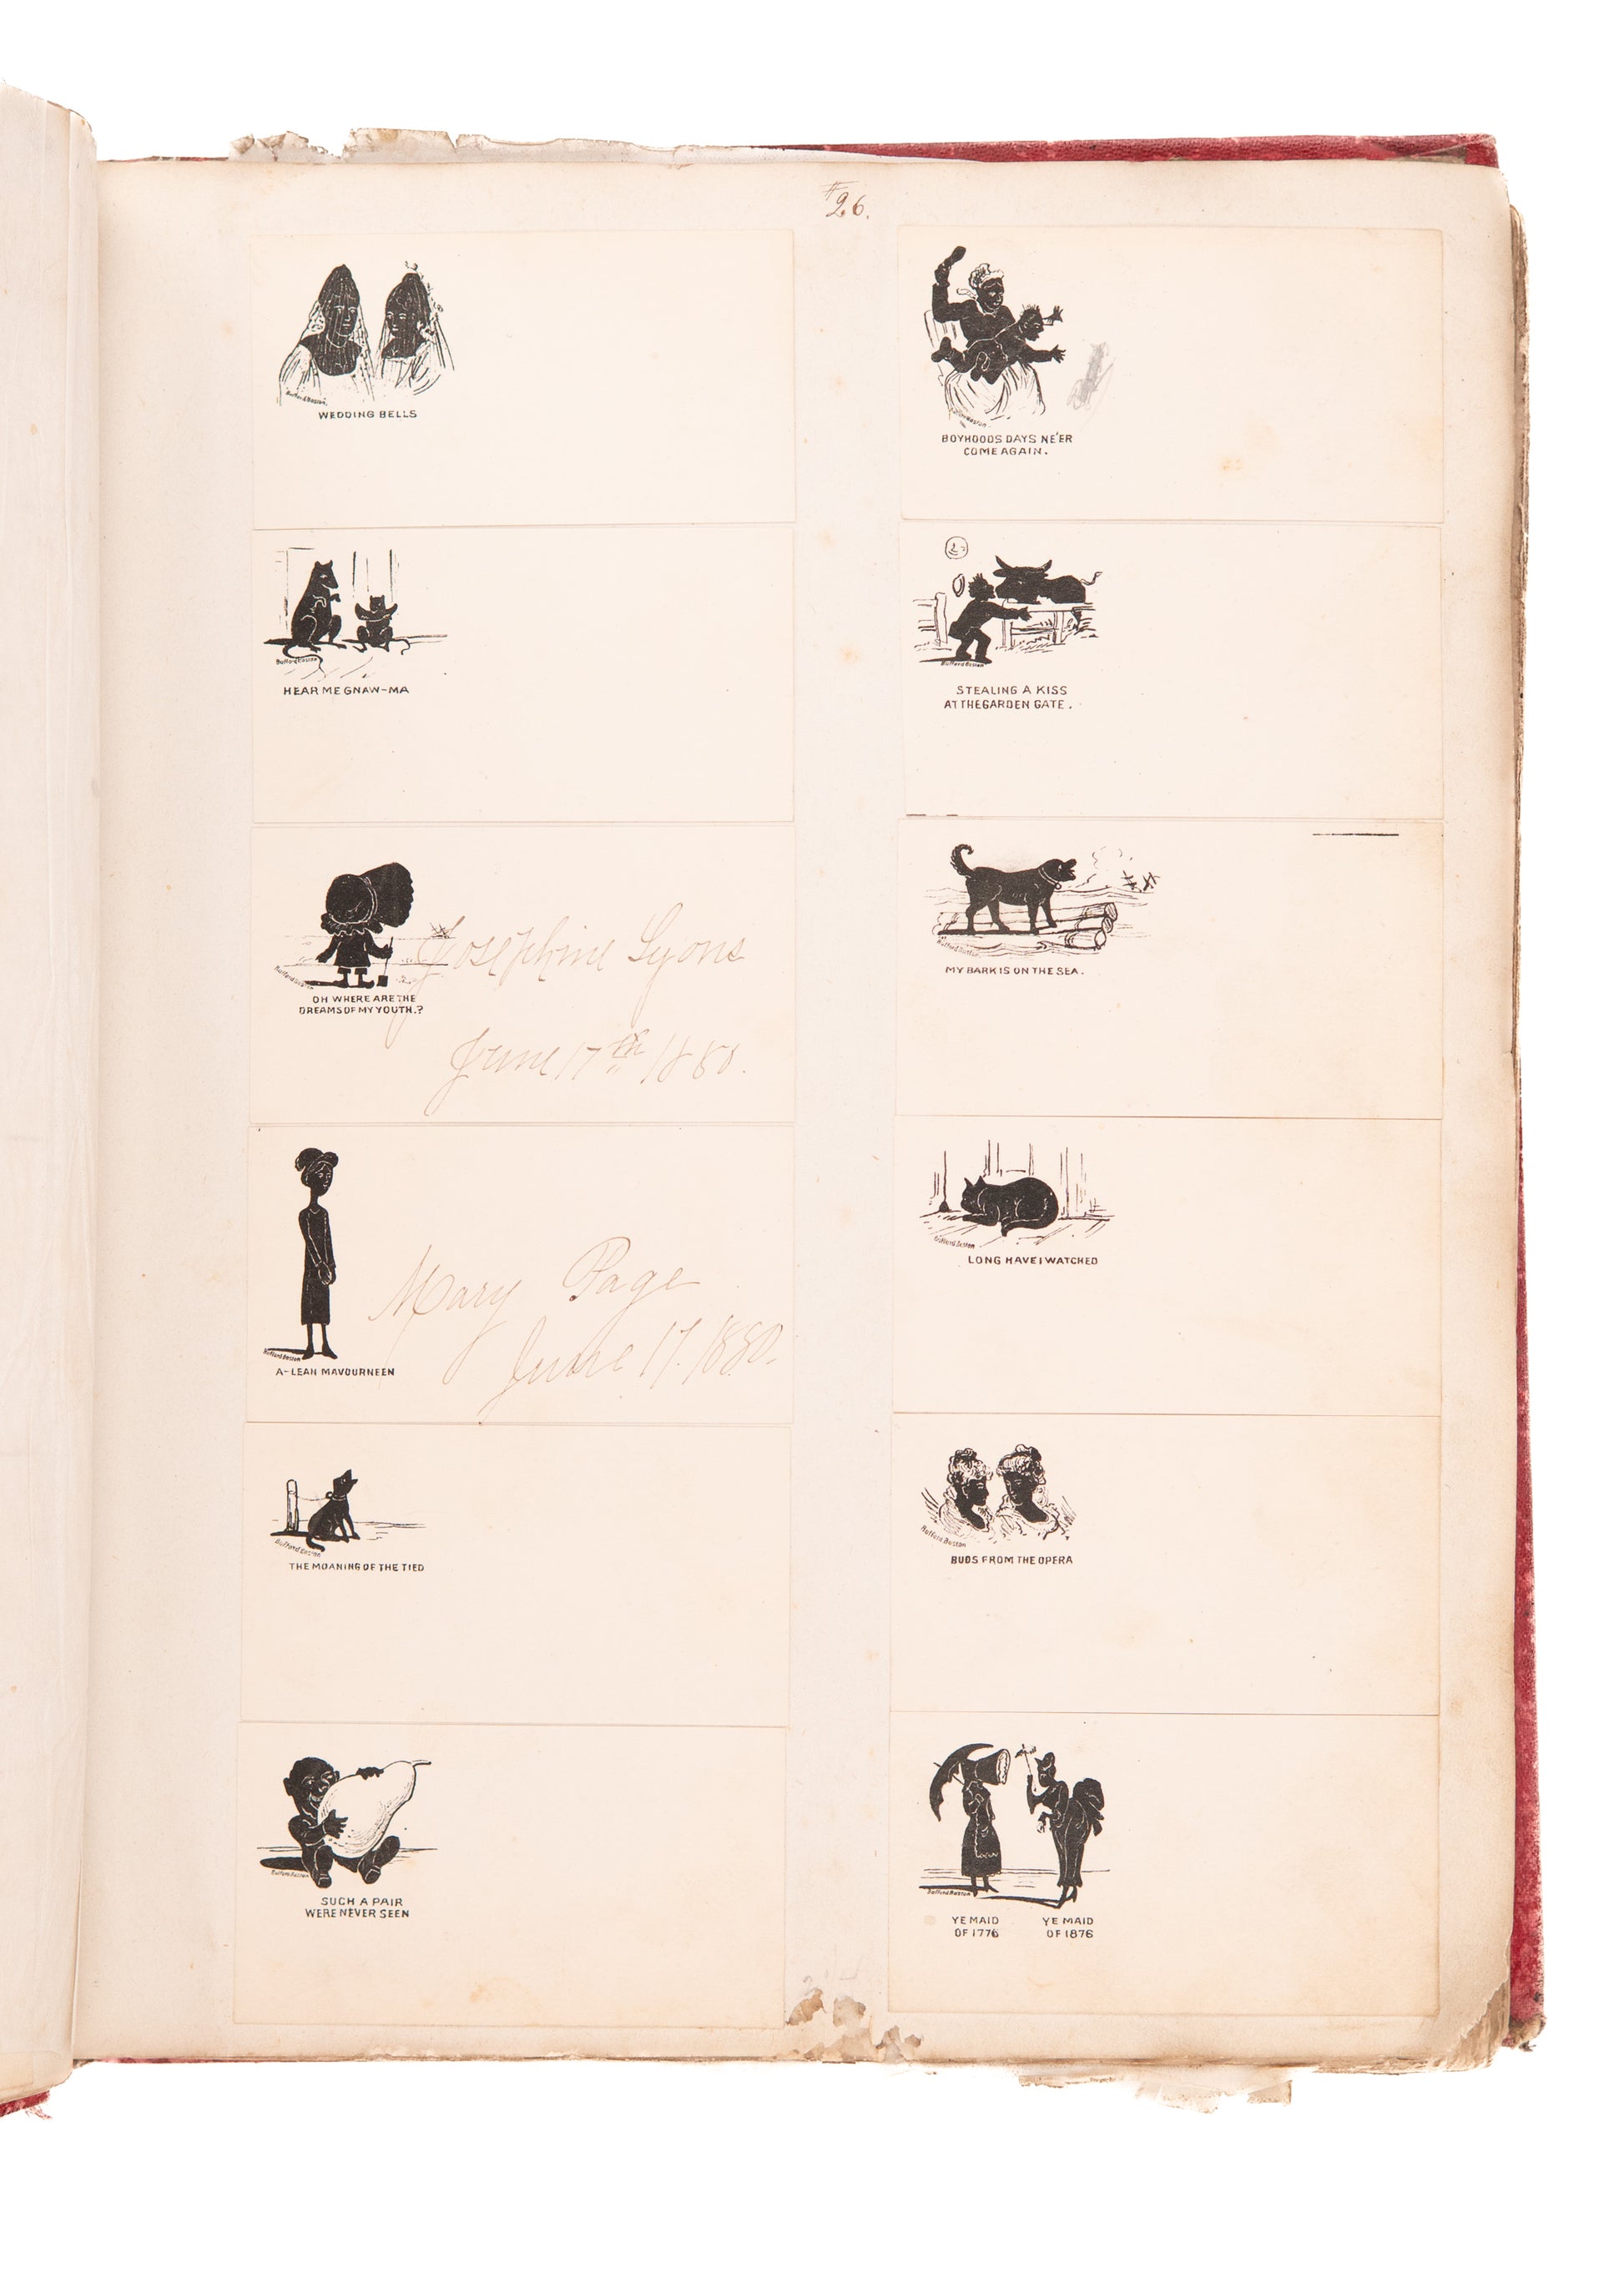 #26.
Bufford Boston.
WEDDING BELLS
Bufford Boston
HEAR ME GNAW-MA
Bufford Boston
OH WHERE ARE THE
DREAMS OF MY YOUTH.?
Josephine Lyons
June 17th 1880.
Bufford Boston
A-LEAN MAVOURNEEN
Mary Page
June 17. 1880.
Bufford Boston
THE MOANING OF THE TIED
Bufford Boston
SUCH A PAIR
WERE NEVER SEEN
Boston
BOYHOODS DAYS NE'ER
COME AGAIN.
Bufford Boston
STEALING A KISS
AT THE GARDEN GATE.
Bufford Boston
MY BARK IS ON THE SEA.
Bufford Boston
LONG HAVE I WATCHED
Bufford Boston
BUDS FROM THE OPERA
Bufford Boston
YE MAID
OF 1776
YE MAID
OF 1876